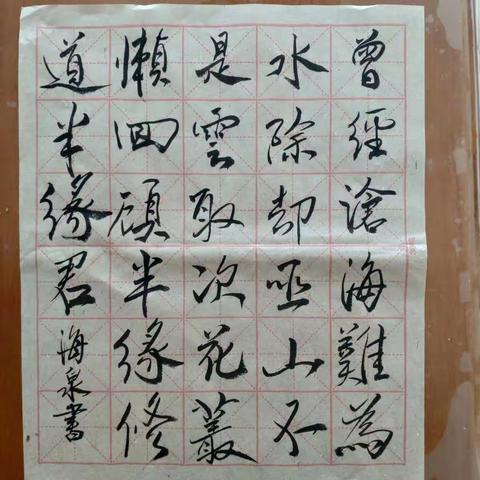 曾經滄海難為
水除却巫山不
是雲取次花叢
懶回顧半緣修
道半緣君
海泉書